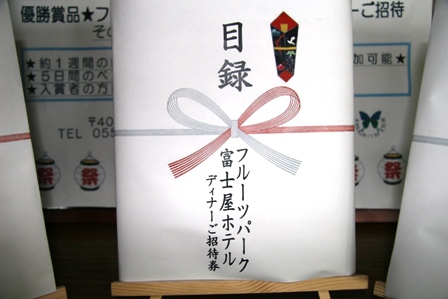 目録
フルーツパーク
富士屋ホテル
ディナーご招待券
優勝賞品★フ
ご招待
そ
★約1週間の
★5日間のペ
★入賞者の方
加可能★
〒40
TEL 055
祭
祭
祭
祭